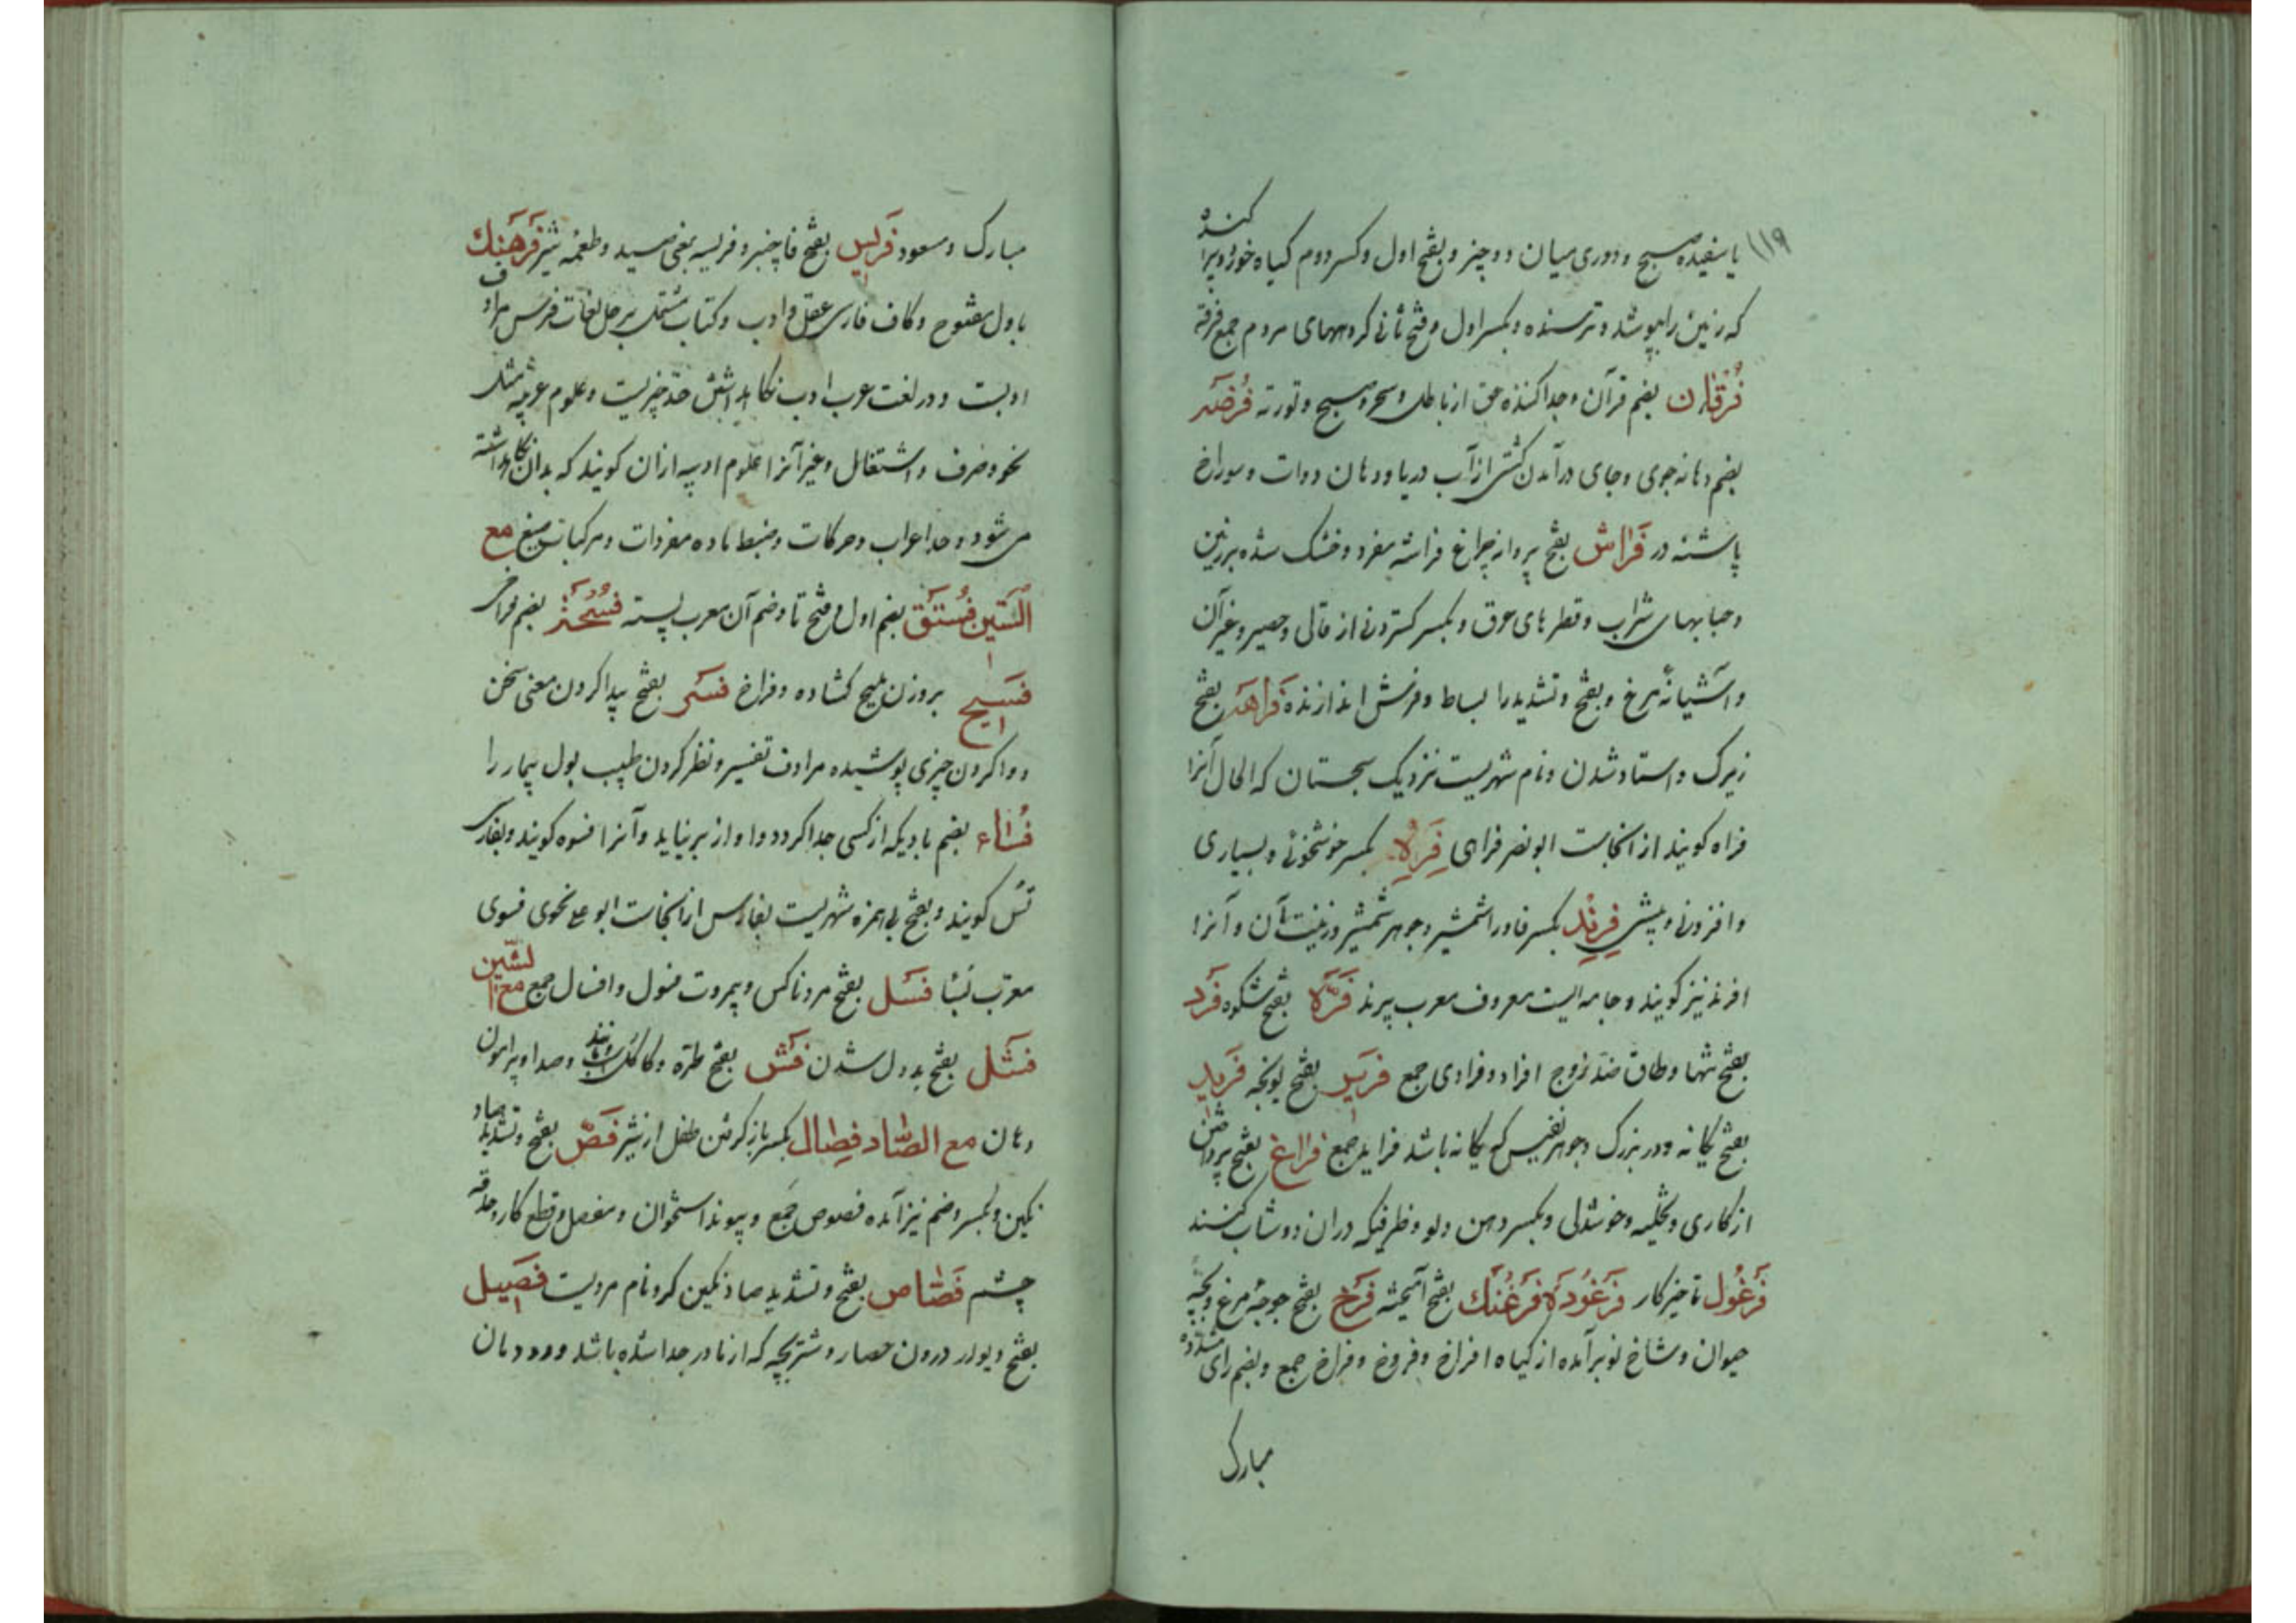 ۱۱۹
یا سفیده صبح و دوری میان دو چیز و بفتح اول و کسر دوم کیاه خورد و پراکنده
که زمین را بپوشد و ترسنده و بکسر اول و فتح ثانی کروههای مردم جمع فرقة
فُرْقان بضم قرآن و جدا کننده حق از باطل و سحر و صبح و توریة فُرضَه
بضم دهانه جوی و جای درآمدن کشتی از آب دریا و دهان دوات و سوراخ
پاشنه در فَراش بفتح پروانه چراغ فراشه مفرد و خشک شده بر زمین
و حبابهای شراب و قطرهای عرق و بکسر کستردنی از قالی و حصیر و غیر آن
و آشیانهٔ مرغ و بفتح و تشدید را بساط و فرش اندازنده فَراهَه بفتح
زیرک و استاد شدن و نام شهریست نزدیک سجستان که الحال آنرا
فراه کویند از آنجاست ابو نصر فراهی بکسر خوشخوئی و بسیاری
و افزونی و بیشی فِرِنْد بکسر فا و را شمشیر و جوهر شمشیر و زینت آن و آنرا
افرند نیز کویند و جامه ایست معروف معرب پرند فَرَّه بفتح شکوه فَرد
بفتح تنها و طاق ضد زوج افراد و فرادی جمع بفتح یونجه فَرید
بفتح یکانه و در بزرک و جوهر نفیس که یکانه باشد فراید جمع فَراغ بفتح پرداختن
از کاری و تخلیه و خوشدلی و بکسر دهن دلو و ظرفیکه دران دوشاب کنند
فَرغُول تاخیر کار فَرغُودَه فَرغُنک بفتح آمیخته فَرخ بفتح جوجهٔ مرغ و بچهٔ
حیوان و شاخ نو برآمده از کیاه افراخ و فروخ و فراخ جمع و بضم رای مشدده
مبارک
مبارک و مسعود فَریس بفتح فا چنبر و فریسه بمعنی صید و طعمه شیر فَرهَنک
باول مفتوح و کاف فارسی عقل و ادب و کتاب مشتمل بر حل لغات فرس مرادف
ادبست و در لغت عرب ادب نکاهداشتن حد چیزیست و علوم عربیه مثل
نحو و صرف و اشتغال و غیر آنرا علوم ادبیه ازان کویند که بدان نکاهداشته
می شود حد اعراب و حرکات و ضبط ماده مفردات و مرکبات صیغ مع
السّین فُستَق بضم اول و فتح تا و ضم آن معرب پسته بضم فراخی
فَسیح بروزن ملیح کشاده و فراخ فَسَر بفتح پیدا کردن معنی سخن
و وا کردن چیزی پوشیده مرادف تفسیر و نظر کردن طبیب بول بیمار را
فُساء بضم بادیکه از کسی جدا کردد و اواز بر نیاید و آنرا فسوه کویند و بفارسی
تس کویند و بفتح بی همزه شهریست بفارس از انجاست ابو علی نحوی فسوی
معرّب بسا فَسل بفتح مرد ناکس و بیمروت فسول و افسال جمع مع الشّین
فَشَل بفتح بددل شدن فَش بفتح طره و کاکل و مانند و صدا و پیرامون
دهان مع الصّاد فِصال بکسر باز کرفتن طفل از شیر فَصّ بفتح و تشدید صاد
نکین و بکسر و ضم نیز آمده فصوص جمع و پیوند استخوان و مفصل و قطع کار و حدقه
چشم فَصّاص بفتح و تشدید صاد نکین کر و نام مردیست فَصیل
بفتح دیوار درون حصار و شتر بچه که از مادر جدا شده باشد و دودمان